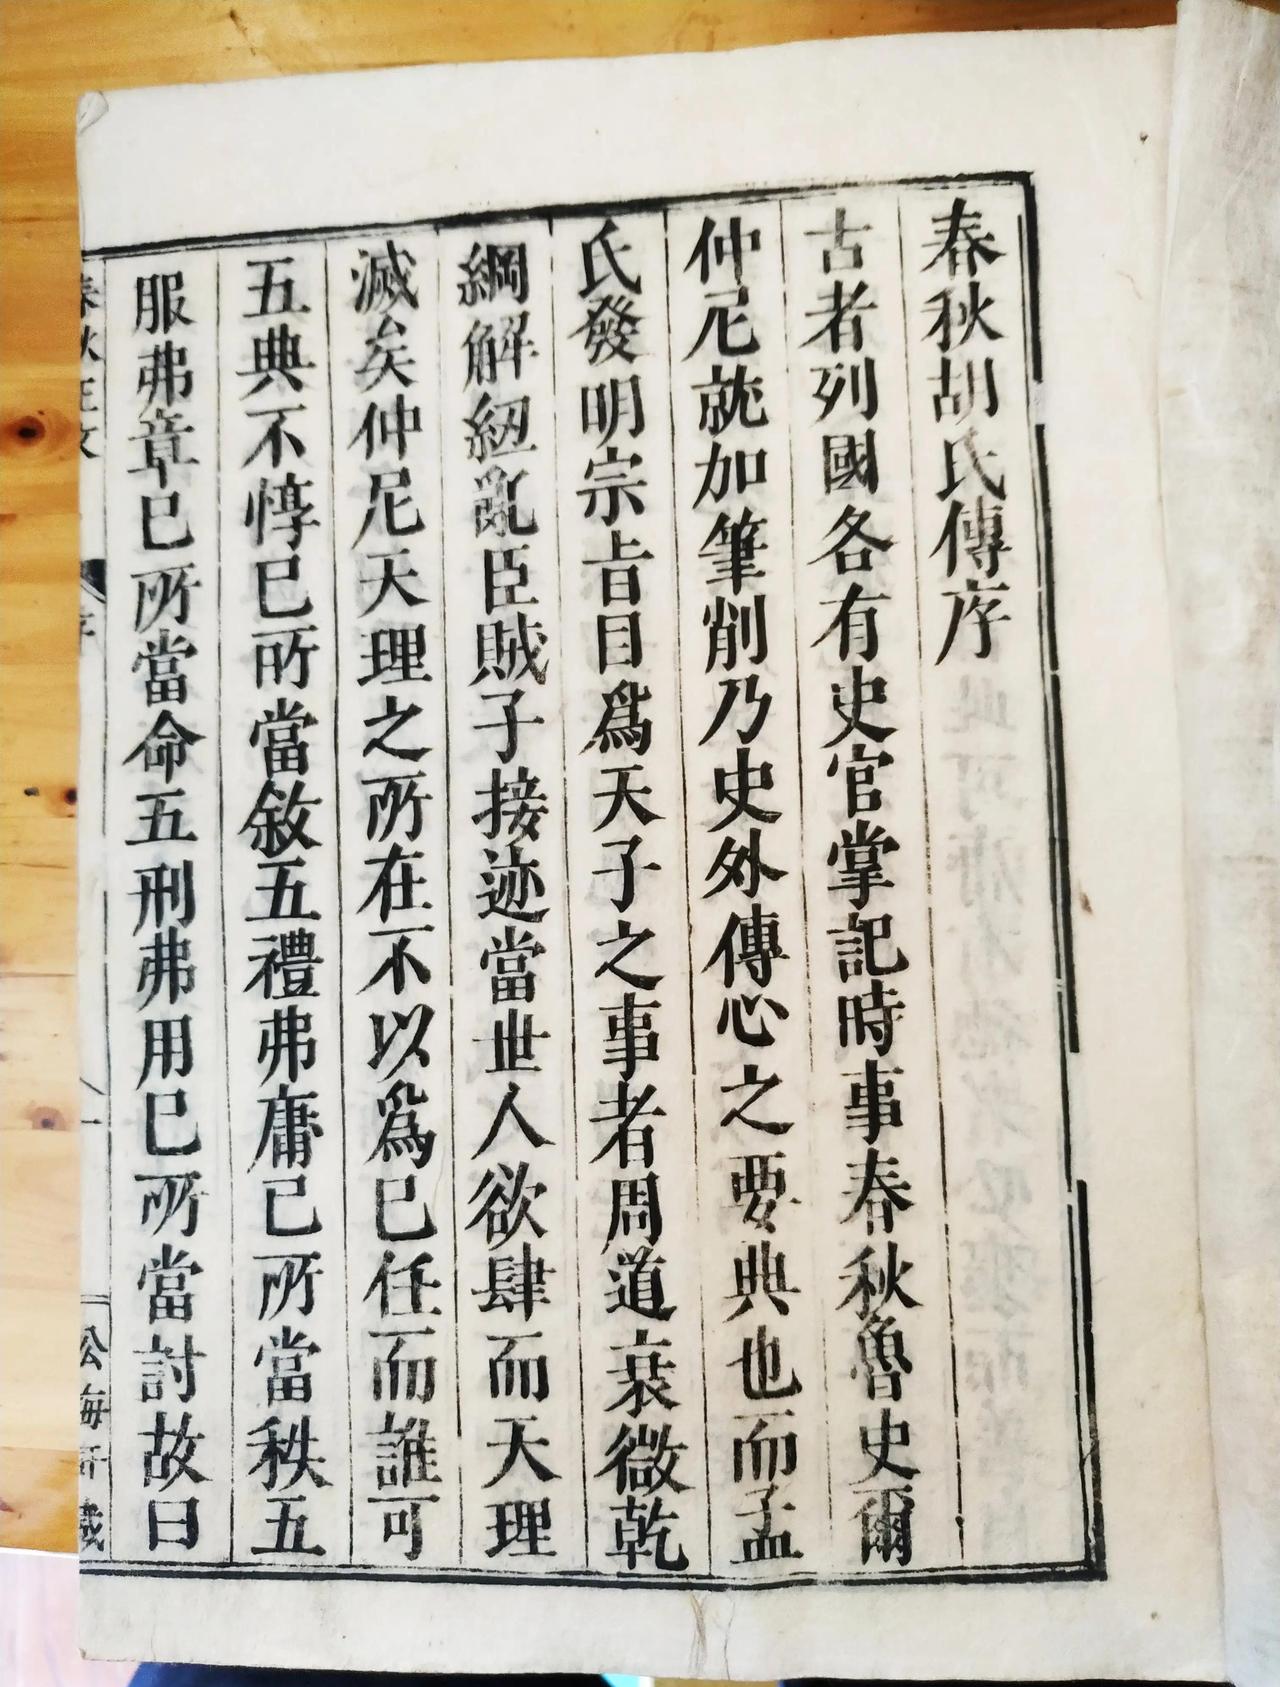 春秋胡氏傳序
古者列國各有史官掌記時事春秋魯史爾
仲尼就加筆削乃史外傳心之要典也而孟
氏發明宗旨目爲天子之事者周道衰微乾
綱解紐亂臣賊子接迹當世人欲肆而天理
滅矣仲尼天理之所在不以爲己任而誰可
五典不惇已所當敘五禮弗庸已所當秩五
服弗章已所當命五刑弗用已所當討故曰
春秋
序
一